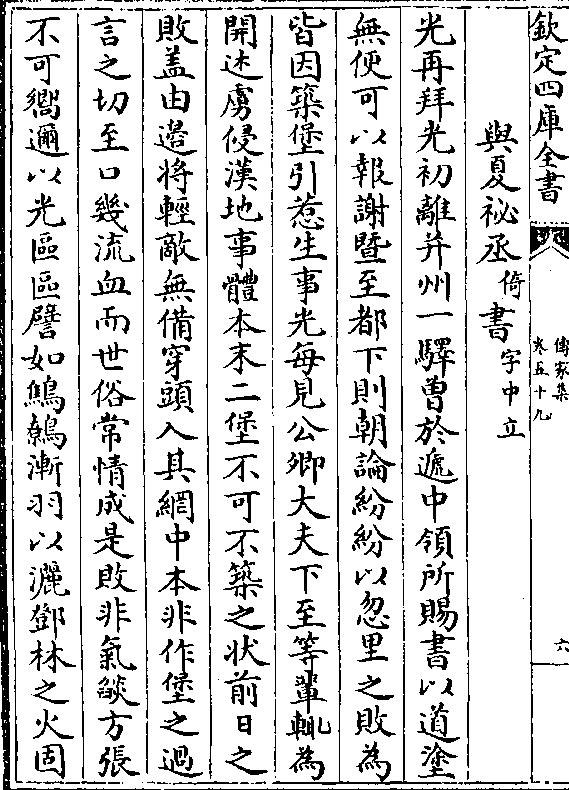 欽定四庫全書
傳家集
卷五十九
六
與夏祕丞倚書字中立
光再拜光初離并州一驛曽於遞中領所賜書以道塗
無便可以報謝暨至都下則朝論紛紛以忽里之敗為
皆因築堡引惹生事光每見公卿大夫下至等輩輒為
開述虜侵漢地事體本末二堡不可不築之状前日之
敗盖由邉将輕敵無備穿頭入其網中本非作堡之過
言之切至口幾流血而世俗常情成是敗非氣燄方張
不可嚮邇以光區區譬如鷦鷯漸羽以灑鄧林之火固